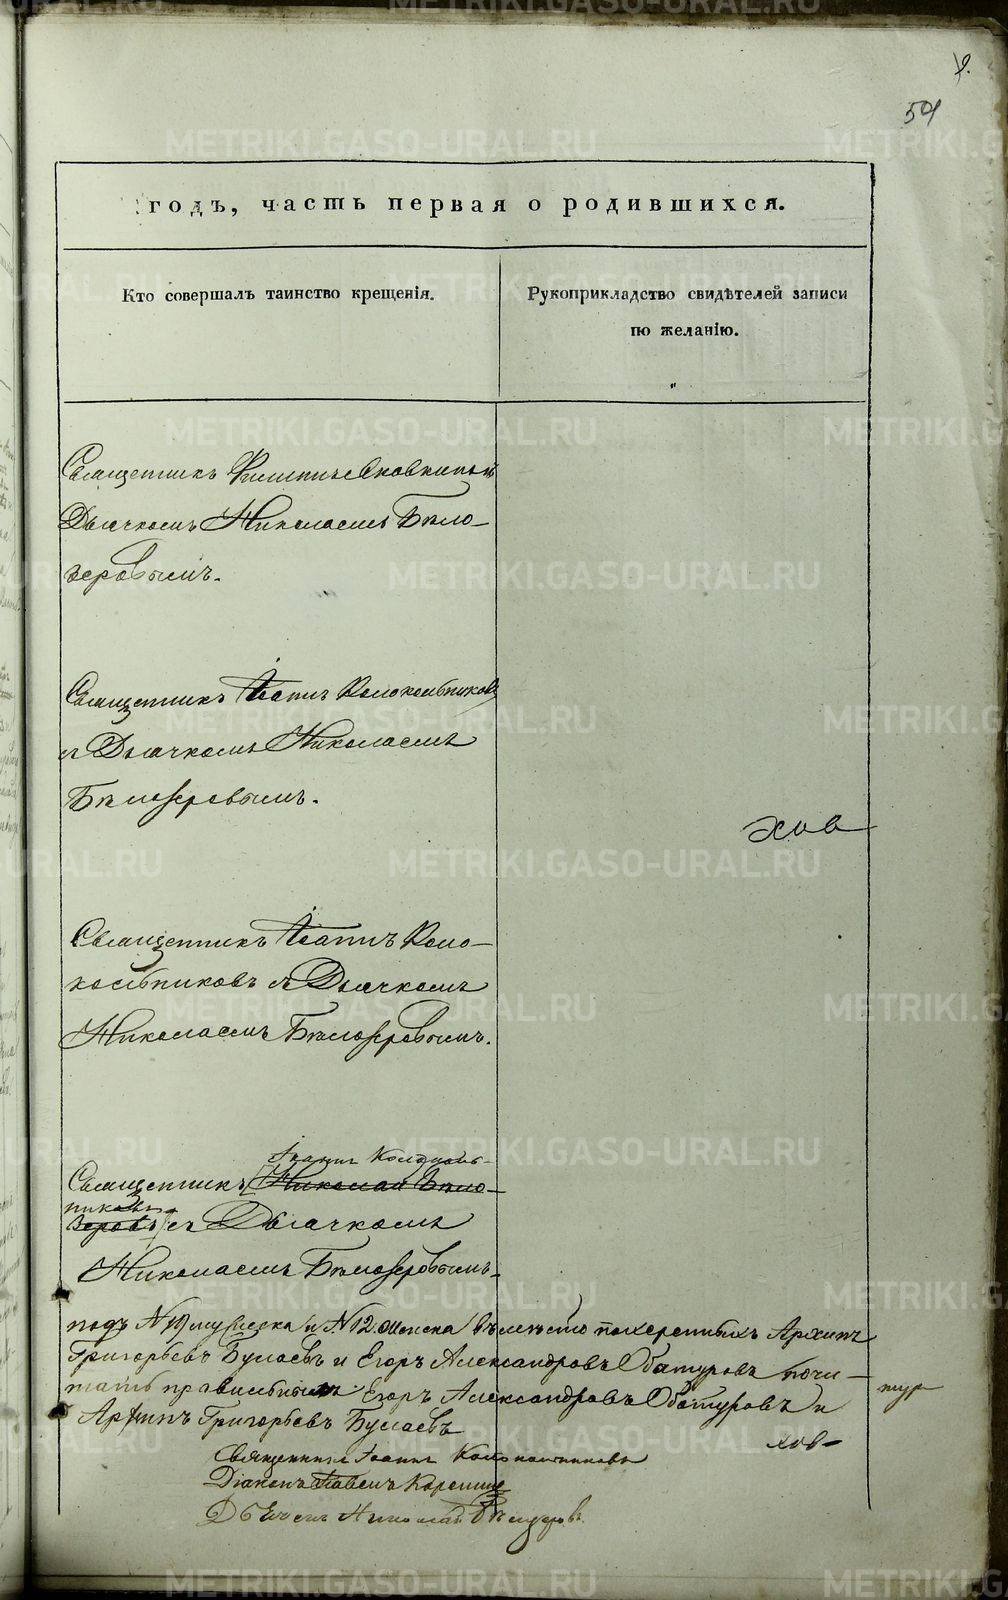 9.
годъ, часть первая о родившихся.
Кто совершалъ таинство крещенія.
Рукоприкладство свидѣтелей записи
по желанію.
Священникъ
Дьячкомъ Николаемъ Бѣло-
зеровымъ.
Священникъ Іоаннъ Колокольниковъ
съ Дьячкомъ Николаемъ
Бѣлозеровымъ.
хов
Священникъ Іоаннъ Коло-
кольниковъ съ Дьячкомъ
Николаемъ Бѣлозеровымъ.
Іоаннъ Колоколь-
Священникъ Николай Бѣло-
никовъ
зеровъ съ Дьячкомъ
Николаемъ Бѣлозеровымъ.
подъ № муж. пола и № 12 женска вмѣсто похеренныхъ Архипъ
Григорьевъ Булаевъ и Егоръ Александровъ Обатуровъ почи-
тать правильнымъ Егоръ Александровъ Обатуровъ и
тур
Архипъ Григорьевъ Булаевъ
хов-
Священникъ Іоаннъ Колокольниковъ
Діаконъ Павелъ
Николай Бѣлозеровъ
METRIKI.GASO-URAL.RU